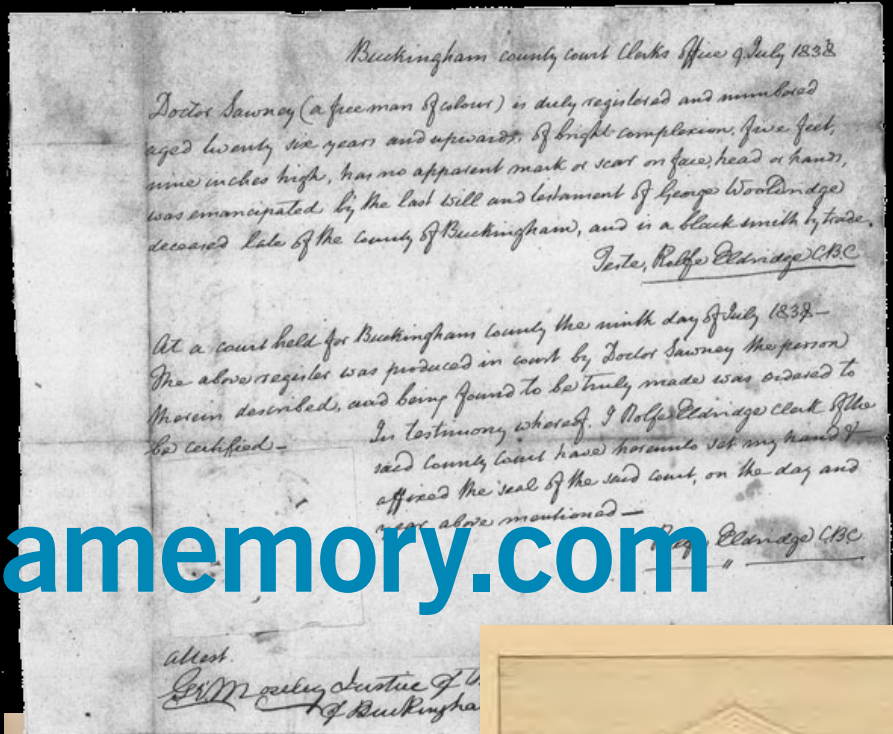 Buckingham county court Clerks office 9 July 1838
Doctor Sawney (a free man of colour) is duly registered and numbored
aged twenty six years and upwards, of bright complexion, five feet,
nine inches high, has no apparent mark or scar on face, head or hands,
was emancipated by the last will and testament of George Wooldridge
deceased late of the county of Buckingham, and is a black smith by trade.
Teste, Rolfe Eldridge C.B.C
At a court held for Buckingham County the ninth day of July 1838 —
The above register was produced in court by Doctor Sawney the person
therein described, and being found to be truly made was ordered to
be certified —
In testimony whereof, I Rolfe Eldridge clerk of the
said County Court have hereunto set my hand &
affixed the seal of the said court, on the day and
year above mentioned —
Rolfe Eldridge C.B.C
amemory.com
attest.
Moseley Justice of
of Buckingha